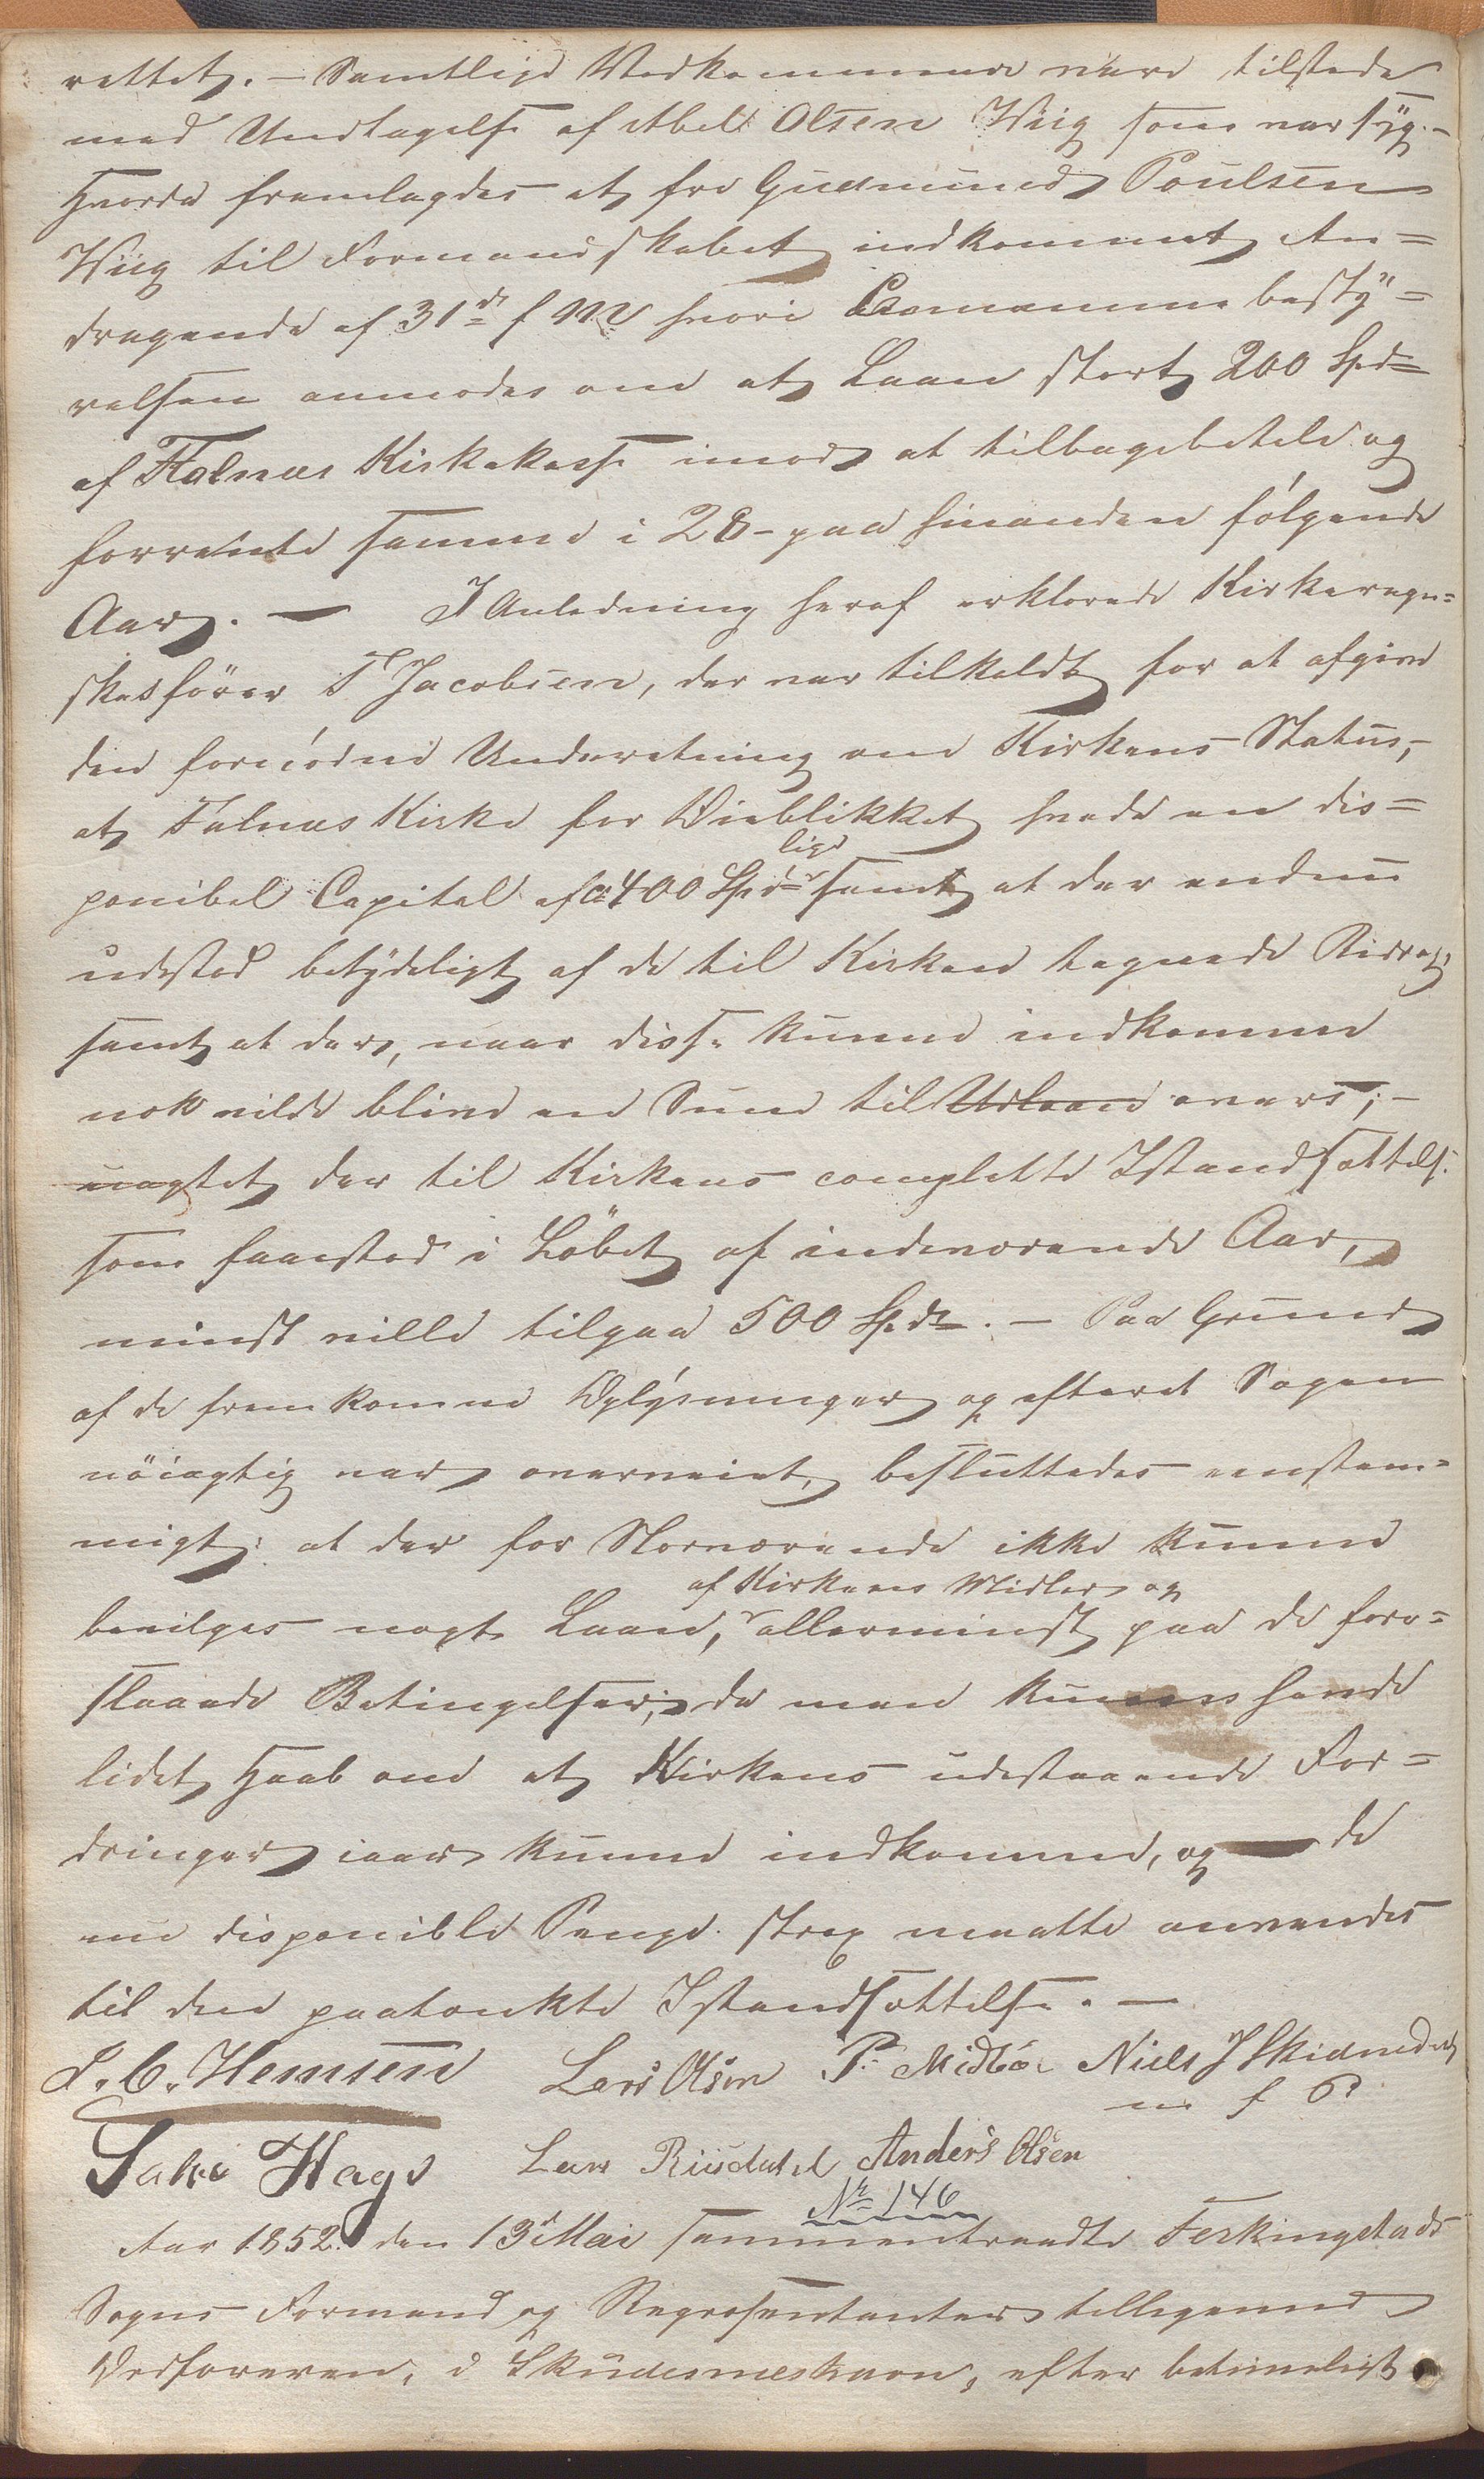 rettet. – Samtlige Vedkommende vare tilstede
med Undtagelse af Abel Olsen Wiig som var syg. –
Hvorda fremlagdes et fra Gudmund Poulsen
Wiig til Formandskabet indkommet An=
dragende af 31de f M hvori Communebesty=
relsen anmodes om et Laan stort 200 Spd
af Falnæs Kirkekasse imod at tilbagebetale og
forrente samme i 28 – paa hinanden følgende
Aar. — I Anledning heraf erklærede Kirkeregn=
skabsfører T Jacobsen, der var tilkaldt for at afgive
den fornødne Underretning om Kirkens Status,
at Falnæs Kirke for Øieblikket havde en dis=
ponibel Capital af ca 400 Spd samt at der endnu
lige
udestod betydeligt af de til Kirken tegnede Bidrag,
samt at der, naar disse kunne indkomme
nok vilde blive en Sum til Udlaan overs; –
uagtet der til Kirkens complette Istandsættelse
som forestod i Løbet af indeværende Aar,
mindst ville tilgaa 500 Spd. – Paa Grund
af de fremkomne Oplysninger og efterat Sagen
nöiagtig var overveiet, besluttedes eenstem=
migt: at der for Nærværende ikke kunne
af Kirkens Midler og
bevilges noget Laan, allermindst paa de fore=
slaaede Betingelser; da man kun havde
lidet Haab om at Kirkens udestaaende For=
dringer iaar kunne indkomme, og de
nu disponible Penge strax maatte anvendes
til den paatænkte Istandsættelse. —
L. C. Hemsen Lars Olsen P. Midbøe Niels J Skidmedt
m f P
Sake Hage Lars Riisdahl Anders Olsen
No 146
Aar 1852 den 13de Mai sammentraadte Ferkingstads
Sogns Formænd og Repræsentanter tilligemed
Ordføreren, i Skudesneshavn, efter betimeligt